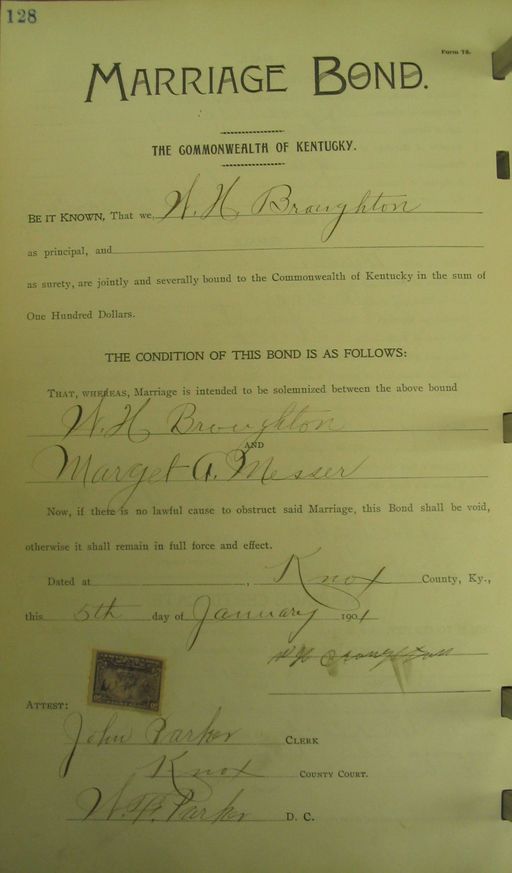 128
Form 75.
MARRIAGE BOND.
THE COMMONWEALTH OF KENTUCKY.
BE IT KNOWN, That we, W. H. Broughton
as principal, and
as surety, are jointly and severally bound to the Commonwealth of Kentucky in the sum of
One Hundred Dollars.
THE CONDITION OF THIS BOND IS AS FOLLOWS:
THAT, WHEREAS, Marriage is intended to be solemnized between the above bound
W. H Broughton
AND
Marget A. Messer
Now, if there is no lawful cause to obstruct said Marriage, this Bond shall be void,
otherwise it shall remain in full force and effect.
Dated at , Knox County, Ky.,
this 5th day of January 1901
W H Broughton
ATTEST:
John Parker CLERK
Knox COUNTY COURT.
W. F. Parker D. C.